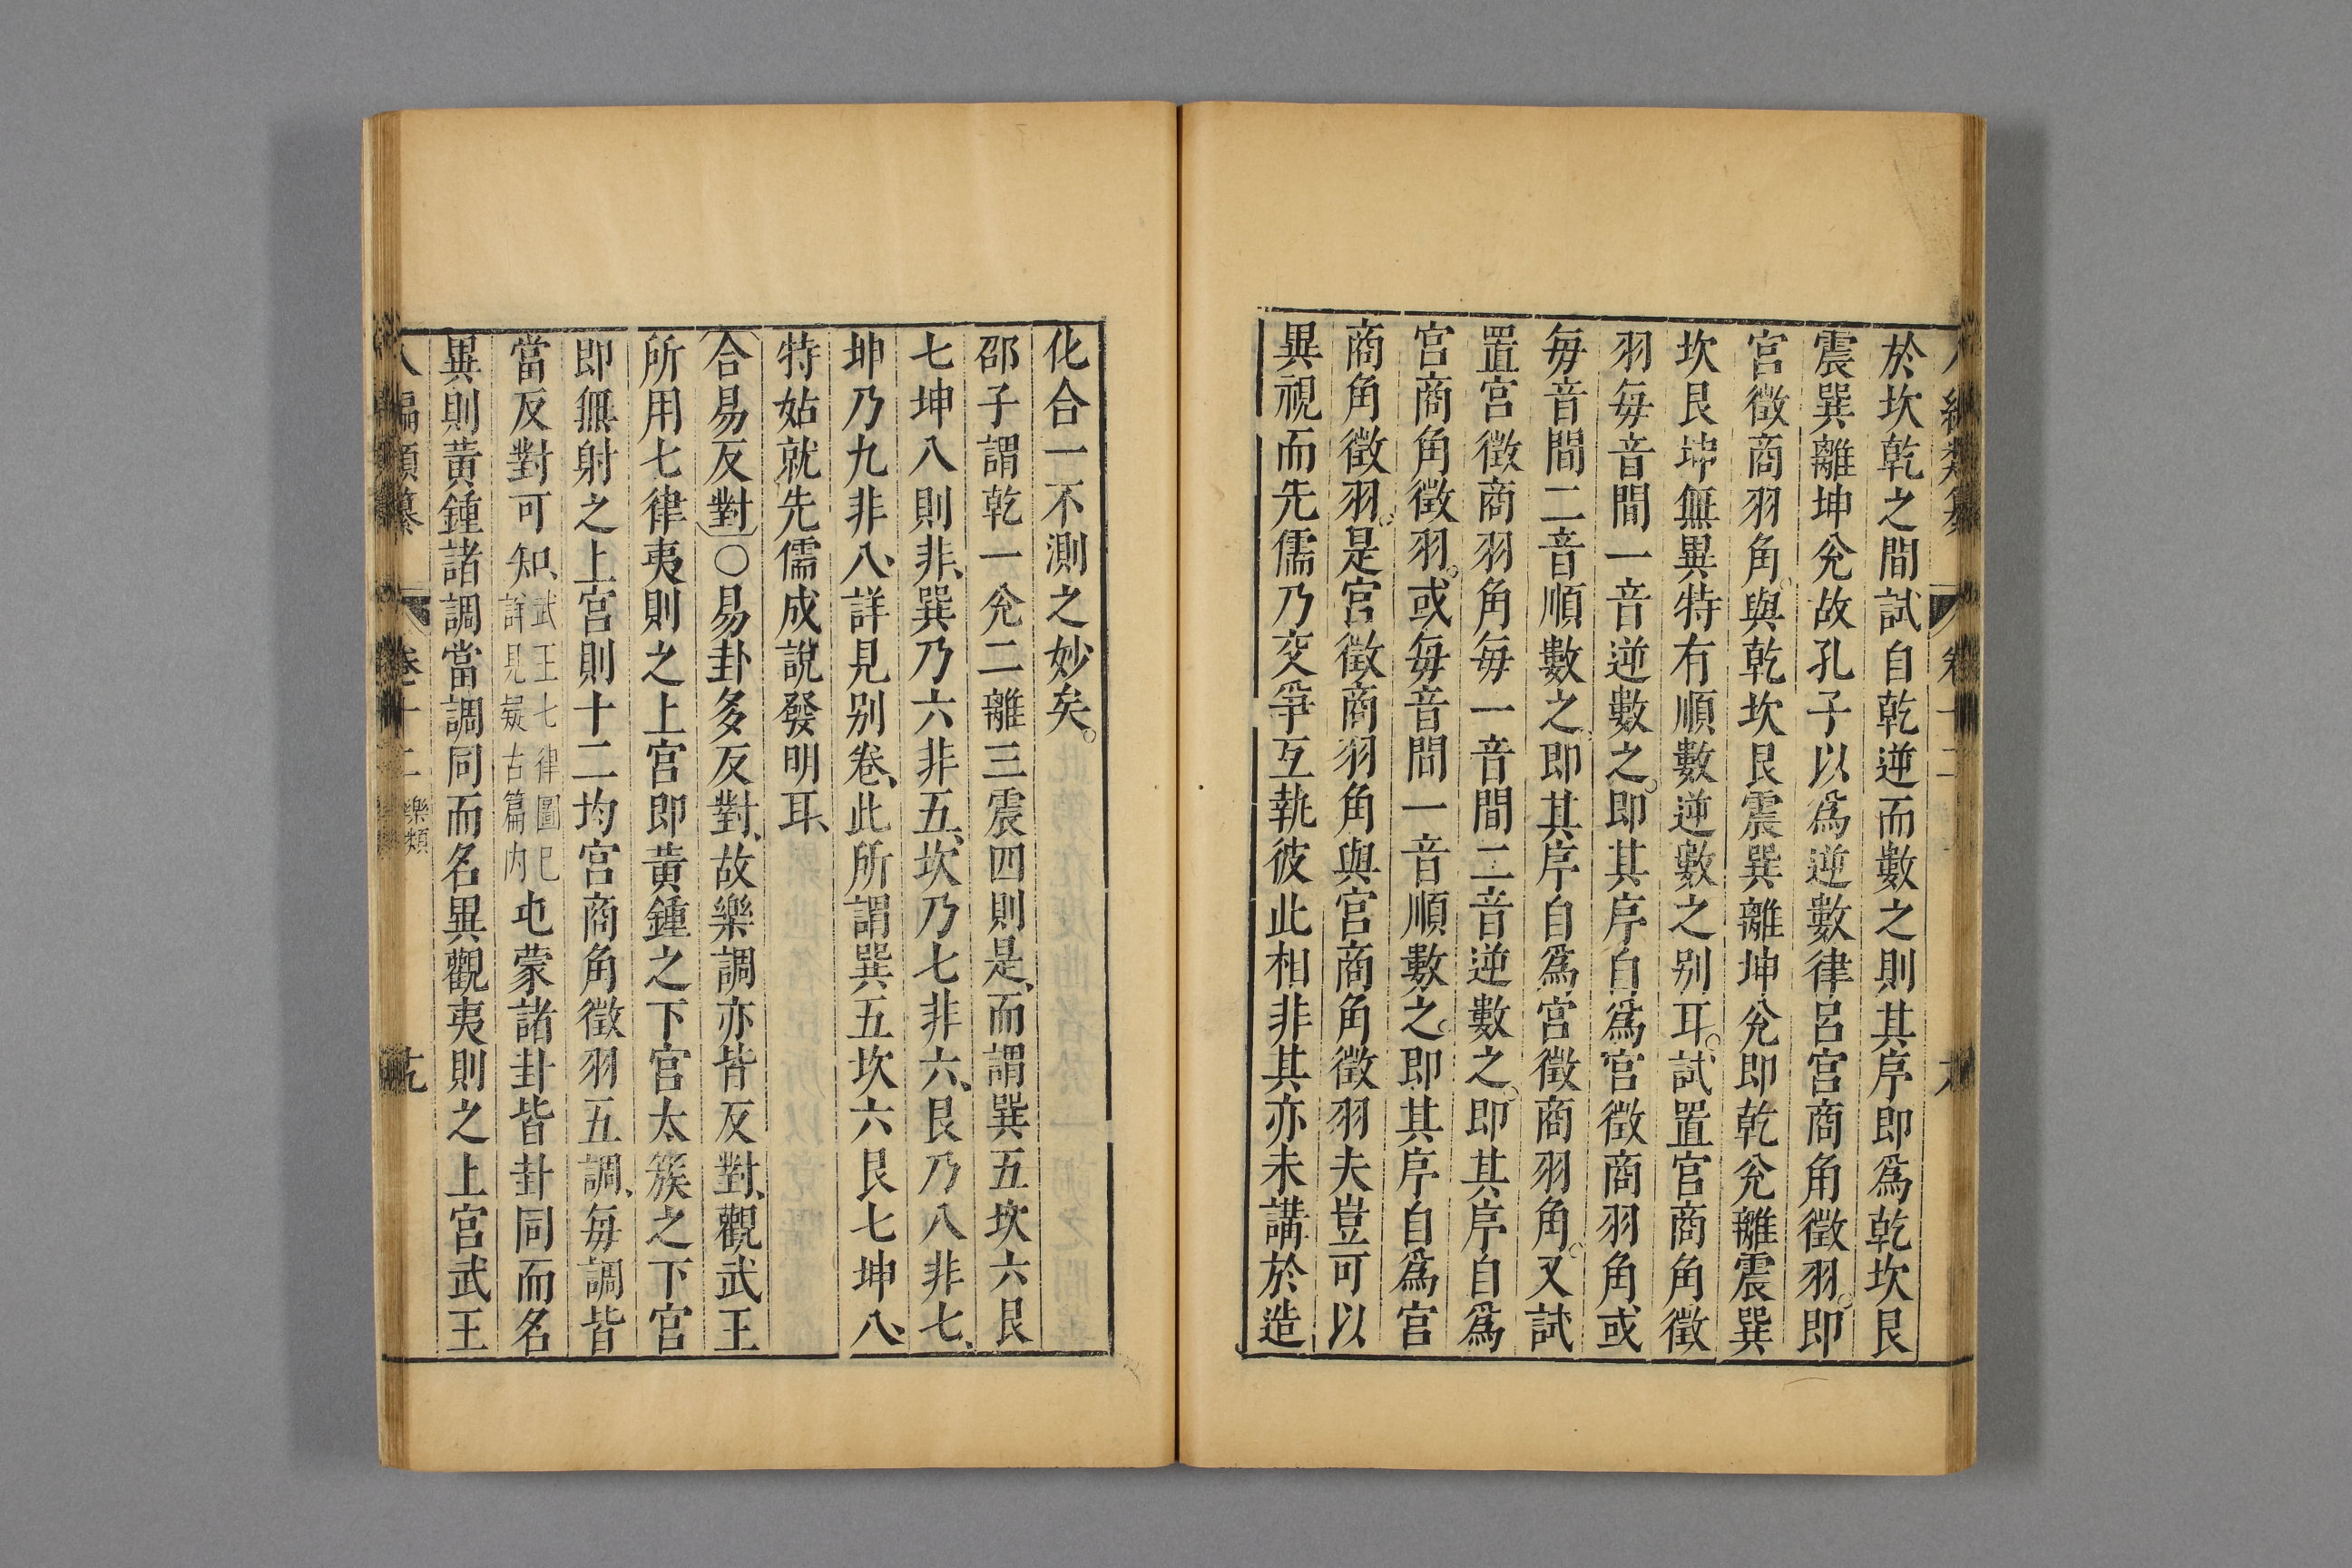 於坎乾之間試自乾逆而數之則其序即爲乾坎艮
震巽離坤兊故孔子以爲逆數律呂宫商角徵羽。即
宫徵商羽角。與乾坎艮震巽離坤兊即乾兊離震巽
坎艮坤無異特有順數逆數之别耳。試置宫商角徵
羽每音間一音逆數之。即其序自爲宫徵商羽角或
每音間二音順數之、即其序自爲宫徵商羽角。又試
置宫徵商羽角每一音間二音逆數之。即其序自爲
宫商角徵羽。或每音間一音順數之。即其序自爲宫
商角徵羽。是宫徵商羽角與宫商角徵羽夫豈可以
異視而先儒乃交爭互執彼此相非其亦未講於造
化合一不測之妙矣。
邵子謂乾一兊二離三震四則是、而謂巽五坎六艮
七坤八則非、巽乃六非五、坎乃七非六、艮乃八非七、
坤乃九非八、詳見别卷、此所謂巽五坎六艮七坤八、
特姑就先儒成說發明耳、
合易反對○易卦多反對、故樂調亦皆反對、觀武王
所用七律夷則之上宫即黄鍾之下宫太簇之下宫
即無射之上宫則十二均宫商角徵羽五調、每調皆
當反對可知、武王七律圖已詳見疑古篇内屯蒙諸卦皆卦同而名
異則黄鍾諸調當調同而名異觀夷則之上宫武王
八編類纂 卷十二 樂類